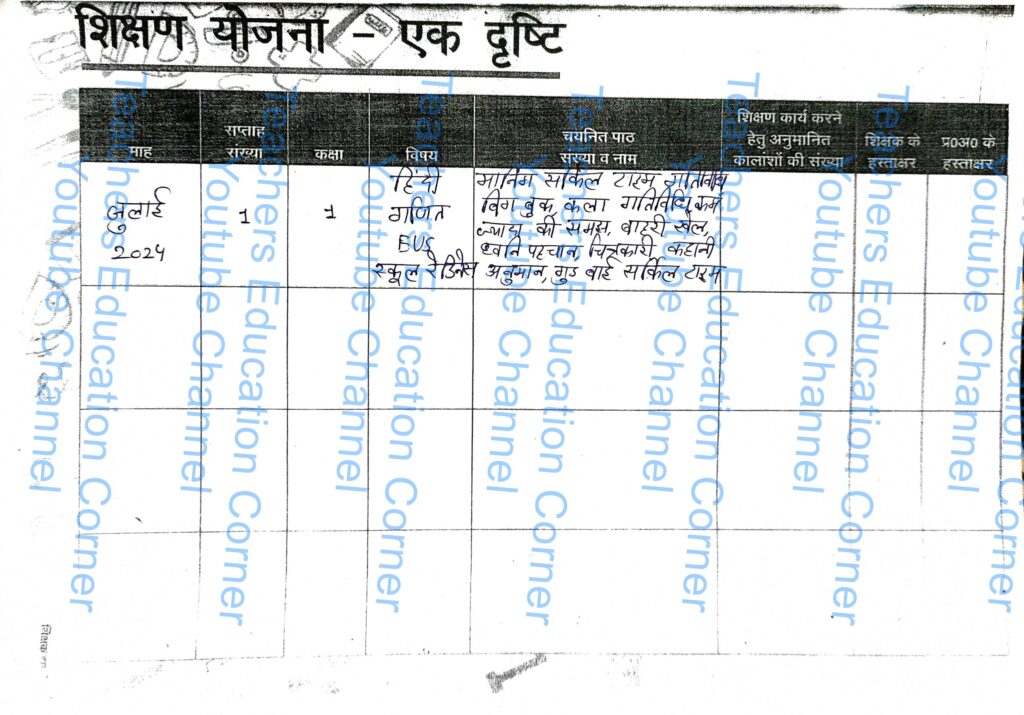 शिक्षण योजना – एक दृष्टि
माह
सप्ताह
संख्या
कक्षा
विषय
चयनित पाठ
संख्या व नाम
शिक्षण कार्य करने
हेतु अनुमानित
कालाशों की संख्या
शिक्षक के
हस्ताक्षर
प्र0अ0 के
हस्ताक्षर
जुलाई
2024
1
1
हिंदी
गणित
EVS
स्कूल रेडिनेस
मार्निंग सर्किल टाइम गतिविधि
बिग बुक, कला गतिविधि, कम
ज्यादा की समझ, बाहरी खेल,
ध्वनि पहचान, चित्रकारी, कहानी
अनुमान, गुड बाई सर्किल टाइम
Teachers Education Corner
Youtube Channel
Teachers Education Corner
Youtube Channel
Teachers Education Corner
Youtube Channel
Teachers Education Corner
Youtube Channel
Teachers Education Corner
Youtube Channel
Youtube Channel